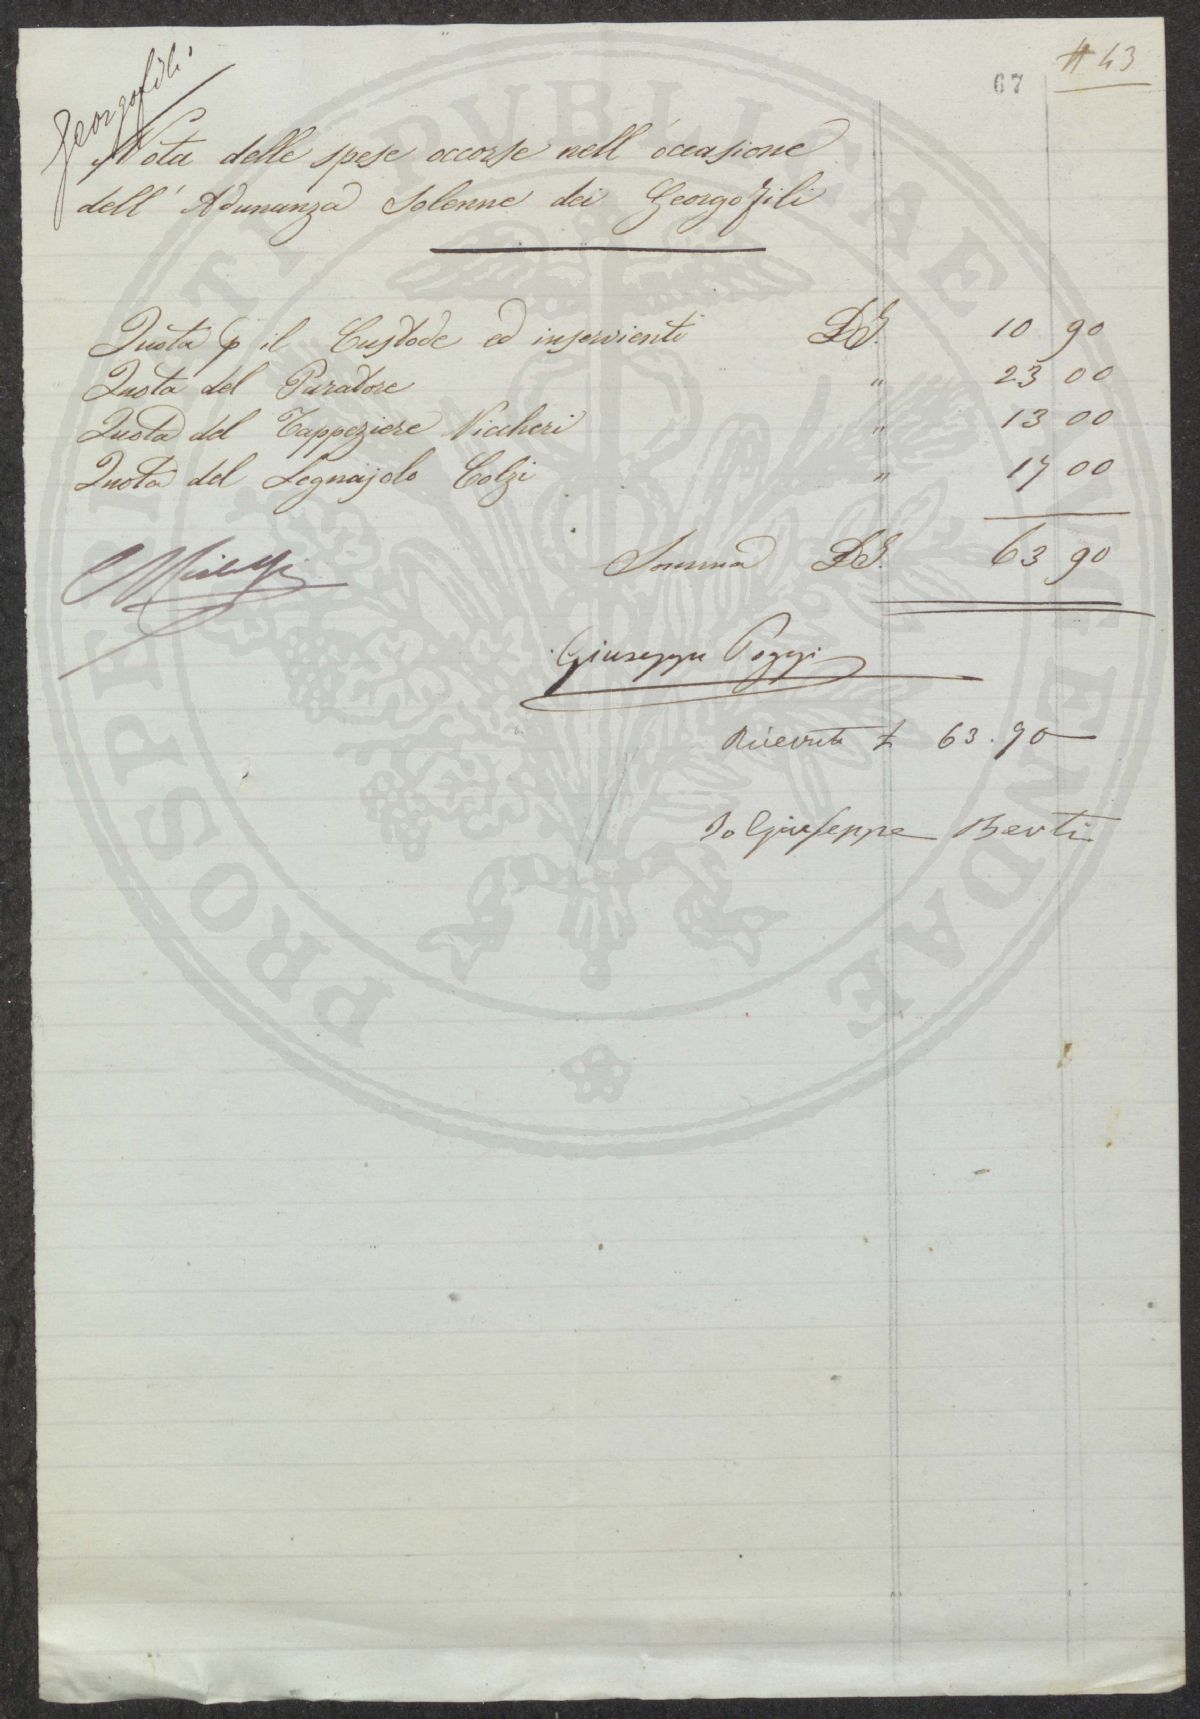 Georgofili
67
# 43
Nota delle spese occorse nell'occasione
dell'Adunanza Solenne dei Georgofili
Quota p il Custode ed inservienti 10 90
Quota del Paratore " 23 00
Quota del Tappeziere Niccheri " 13 00
Quota del Legnajolo Colzi " 17 00
Somma 63 90
Giuseppe Poggi
Ricevuto £ 63.90
Io Giuseppe Berti
PROSPERITATI PVBLICAE AVGENDAE